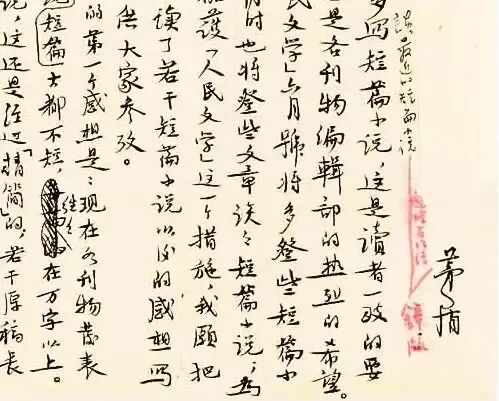 茅盾
谈最近的短篇小说
多写短篇小说,这是讀者一致的要
是各刊物編輯部的热烈的希望。
民文学」六月號将多登些短篇小
时也将登些文章谈々短篇小说,为
护「人民文学」这一个措施,我願把
读了若干短篇小说以后的感想写
供大家参攷。
的第一个感想是:现在各刊物发表
短篇大都不短,往往在万字以上。
说,这还是经过「精简」的,若干原稿長